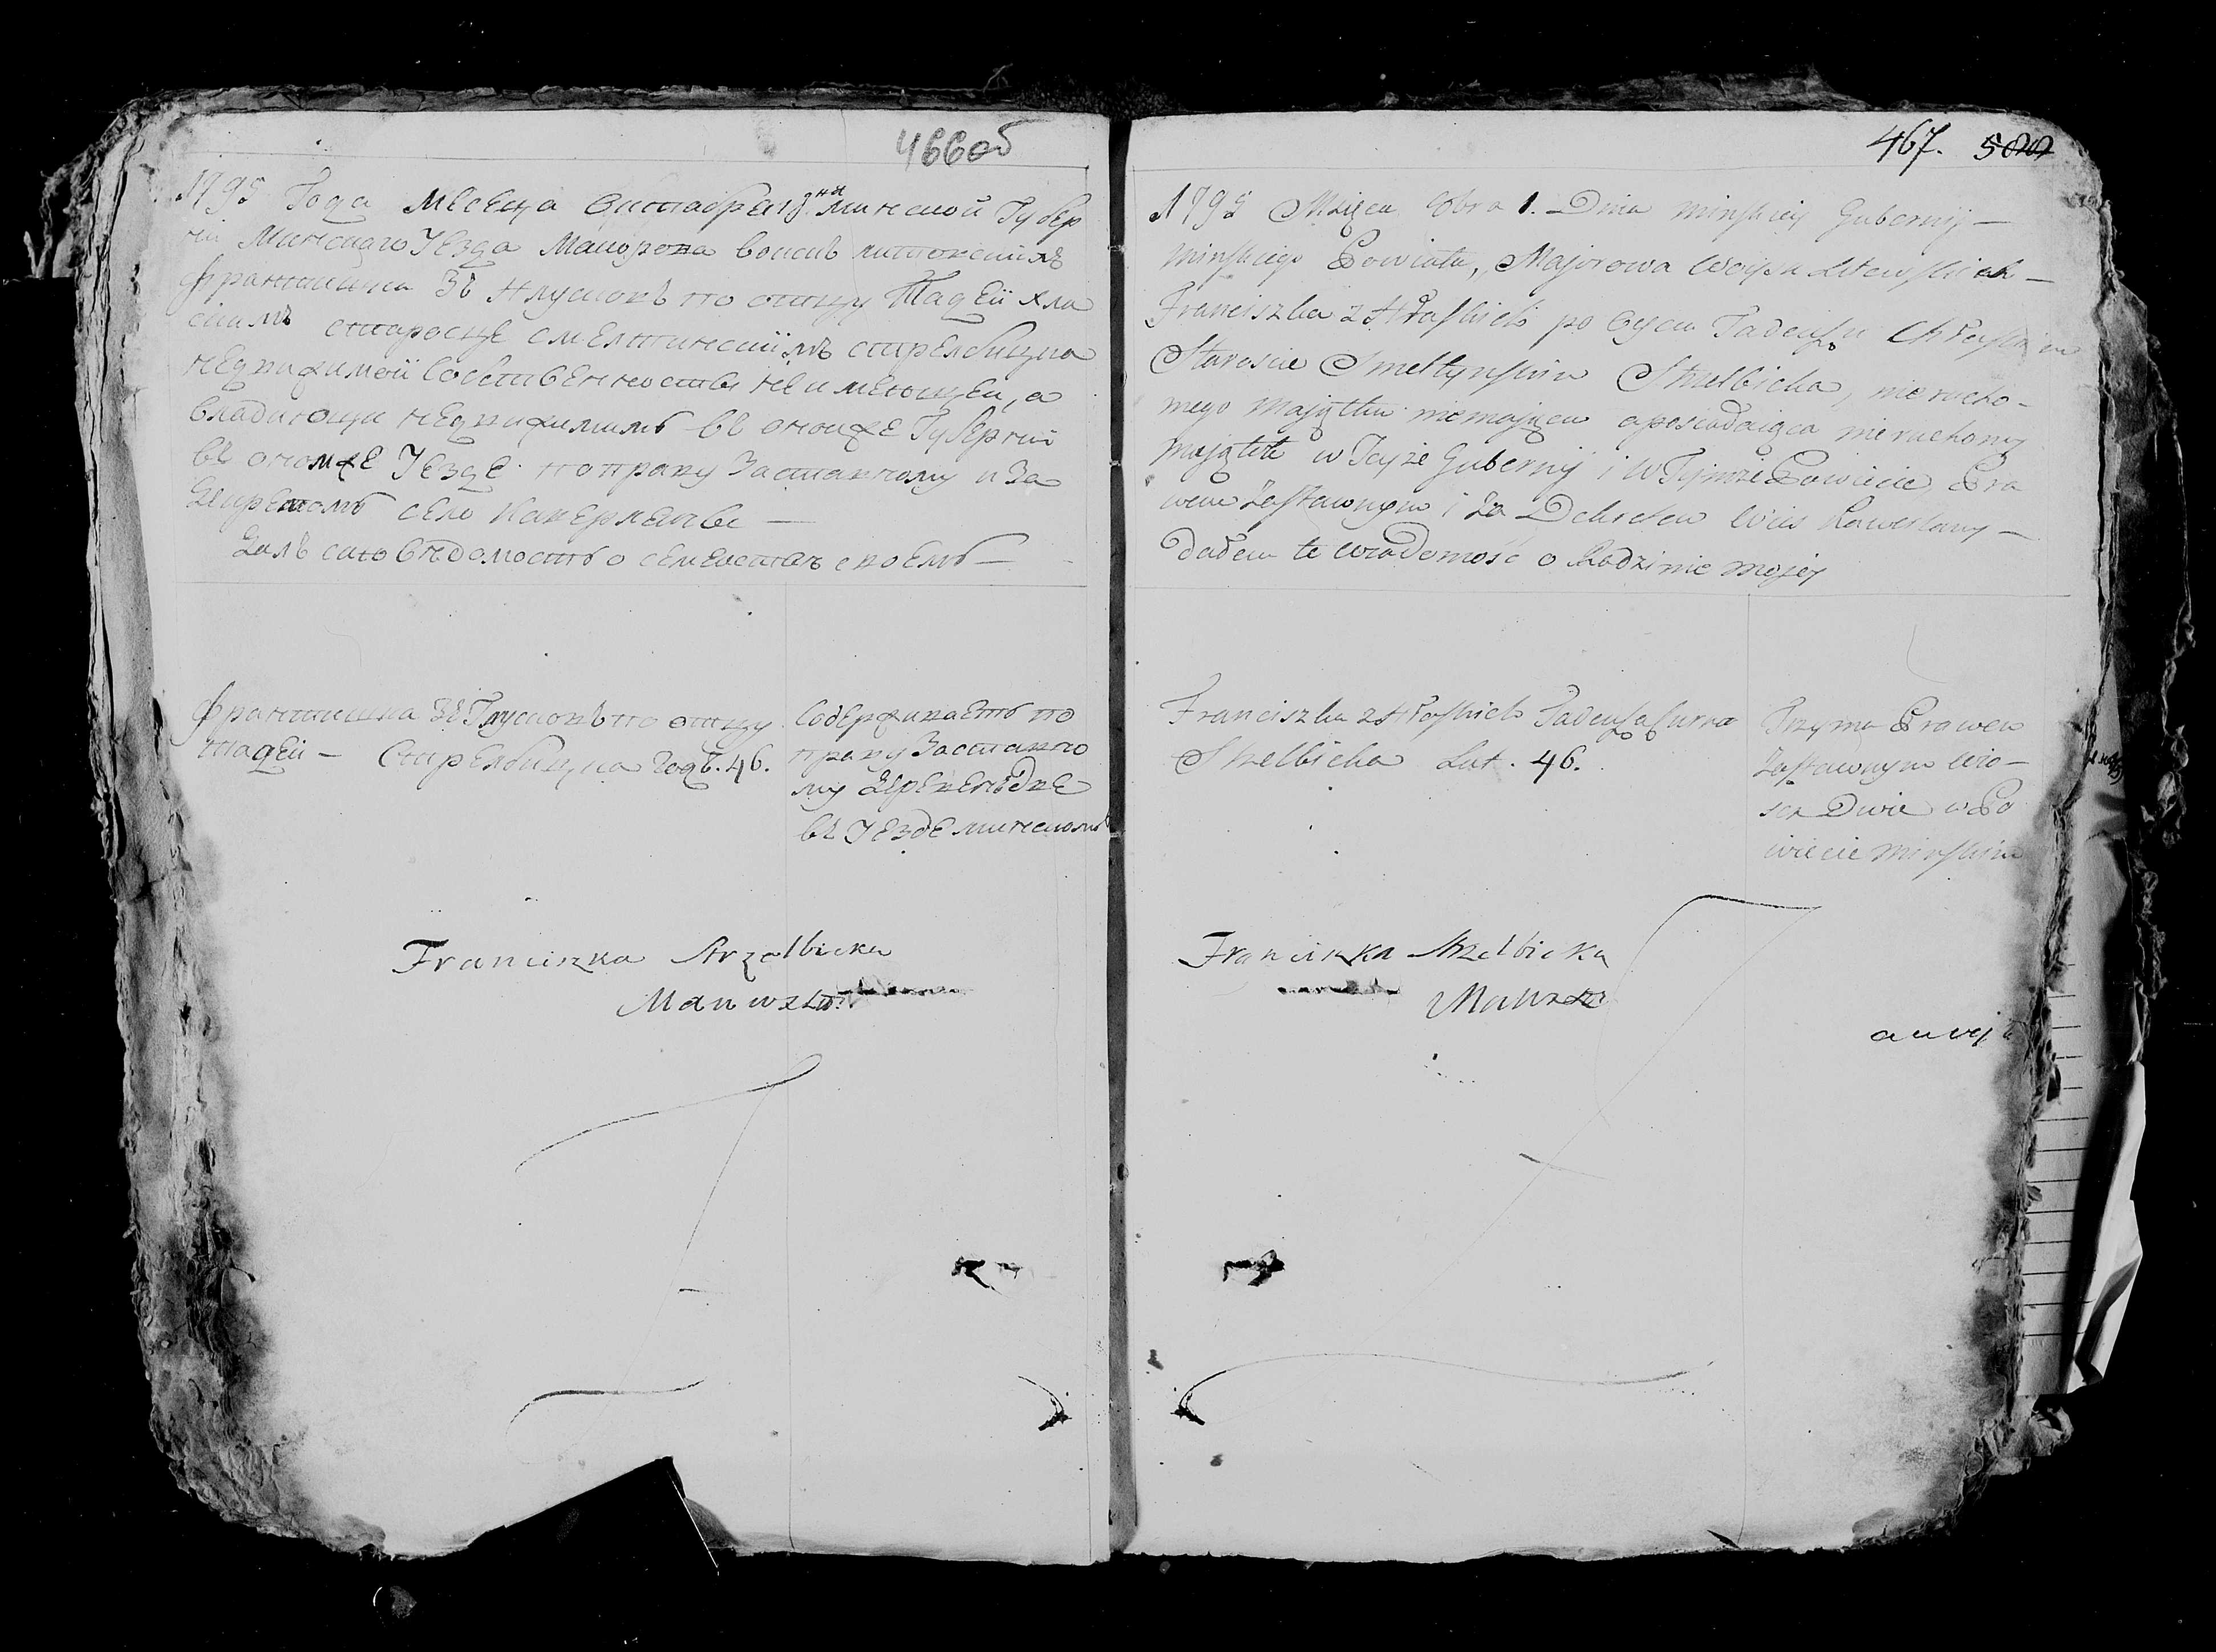 466об
1795 Года месеца Октабра 18. ня минской Губер
ни Минскаго Уезда Маиорова воискъ литовскихъ
Франтишка Зъ по отцу Тадеи хла
скимъ старосце смелтинскимъ стрелбицка
недвижимой собственности не имеющеи, а
владающи недвижимимъ въ оноиже Губернии
въономже Уезде по праву Заставному и За
Декретомъ село —
Далъ сию ведомость о семеистве своемъ —
Франтишка Зъ по отцу
тадеи — Стрелбицка годъ. 46.
Содерживаетъ по
праву Заставно
му деревень две
въ Уезде минскомъ
Franciszka Strzelbicka
467. 500
1795 Mięsca 8bra 1. Dnia minskiey Gubernij —
minskiego Powiatu, Majorowa Woysk Litewskich —
Franciszka z Hłaskich po Oycu Tadeuszu Chłaskim
Staroscie Smeltynskim Strzelbicka, nierucho-
mego majątku niemająca a posiadaiąca nieruchomy
majątek w Teyże Gubernij i w Tymże Powiecie Pra
wem Zastawnym i Za Dekretem Wieś —
dadem te wiadomość o Rodzinie mojey
Franciszka z Hłaskich Tadeusza Curka
Strzelbicka Lat. 46.
Trzyma Prawem
Zastawnym Wio-
sek Dwie w Po
wiecie minskim
Franciszka Strzelbicka